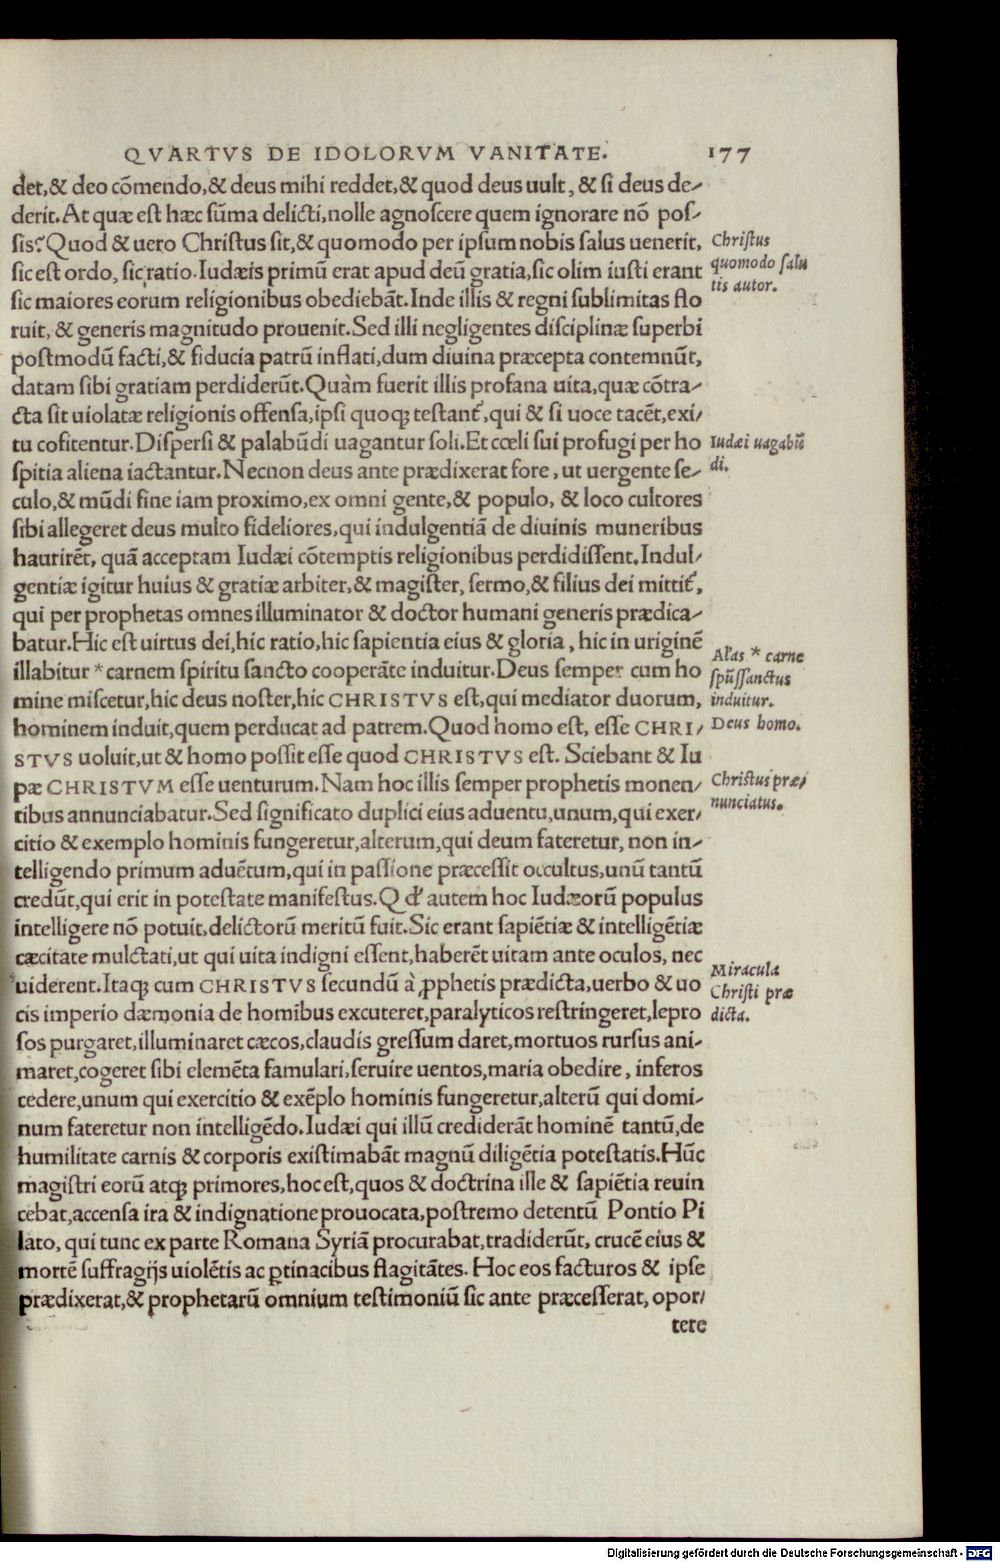 QVARTVS DE IDOLORVM VANITATE. 177
det,& deo cōmendo,& deus mihi reddet,& quod deus uult, & ſi deus de-
derit.At quæ eſt hæc ſūma delicti,nolle agnoſcere quem ignorare nō poſ-
ſis? Quod & uero Chriſtus ſit,& quomodo per ipſum nobis ſalus uenerit,
ſic eſt ordo, ſic ratio.Iudæis primū erat apud deū gratia,ſic olim iuſti erant
ſic maiores eorum religionibus obediebāt.Inde illis & regni ſublimitas flo
ruit, & generis magnitudo prouenit.Sed illi negligentes diſciplinæ ſuperbi
poſtmodū facti,& fiducia patrū inflati,dum diuina præcepta contemnūt,
datam ſibi gratiam perdiderūt.Quàm fuerit illis profana uita,quæ cōtra-
cta ſit uiolatæ religionis offenſa,ipſi quoqꝫ teſtant᷑,qui & ſi uoce tacēt,exi-
tu cofitentur.Diſperſi & palabūdi uagantur ſoli.Et cœli ſui profugi per ho
ſpitia aliena iactantur.Necnon deus ante prædixerat fore, ut uergente ſe-
culo,& mūdi fine iam proximo,ex omni gente,& populo, & loco cultores
ſibi allegeret deus multo fideliores,qui indulgentiā de diuinis muneribus
haurirēt, quā acceptam Iudæi cōtemptis religionibus perdidiſſent.Indul-
gentiæ igitur huius & gratiæ arbiter,& magiſter, ſermo,& filius dei mittit᷑,
qui per prophetas omnes illuminator & doctor humani generis prædica-
batur.Hic eſt uirtus dei,hic ratio,hic ſapientia eius & gloria, hic in uirginē
illabitur * carnem ſpiritu ſancto cooperāte induitur.Deus ſemper cum ho
mine miſcetur,hic deus noſter,hic CHRISTVS eſt,qui mediator duorum,
hominem induit,quem perducat ad patrem.Quod homo eſt, eſſe CHRI-
STVS uoluit,ut & homo poſſit eſſe quod CHRISTVS eſt. Sciebant & Iu
pæ CHRISTVM eſſe uenturum.Nam hoc illis ſemper prophetis monen-
tibus annunciabatur.Sed ſignificato duplici eius aduentu,unum,qui exer-
citio & exemplo hominis fungeretur,alterum,qui deum fateretur, non in-
telligendo primum aduētum,qui in paſſione præceſſit occultus,unū tantū
credūt,qui erit in poteſtate manifeſtus.Qd᷑ autem hoc Iudæorū populus
intelligere nō potuit,delictorū meritū fuit.Sic erant ſapiētiæ & intelligētiæ
cæcitate mulctati,ut qui uita indigni eſſent,haberēt uitam ante oculos, nec
uiderent.Itaqꝫ cum CHRISTVS ſecundū à ꝓphetis prædicta,uerbo & uo
cis imperio dæmonia de homibus excuteret,paralyticos reſtringeret,lepro
ſos purgaret,illuminaret cæcos,claudis greſſum daret,mortuos rurſus ani-
maret,cogeret ſibi elemēta famulari,ſeruire uentos,maria obedire, inferos
cedere,unum qui exercitio & exēplo hominis fungeretur,alterū qui domi-
num fateretur non intelligēdo.Iudæi qui illū crediderāt hominē tantū,de
humilitate carnis & corporis exiſtimabāt magnū diligētia poteſtatis.Hūc
magiſtri eorū atqꝫ primores,hoc eſt,quos & doctrina ille & ſapiētia reuin
cebat,accenſa ira & indignatione prouocata,poſtremo detentū Pontio Pi
lato, qui tunc ex parte Romana Syriā procurabat,tradiderūt, crucē eius &
mortē ſuffragijs uiolētis ac ꝑtinacibus flagitātes. Hoc eos facturos & ipſe
prædixerat,& prophetarū omnium teſtimoniū ſic ante præceſſerat, opor-
tere
Chriſtus
quomodo ſalu
tis autor.
Iudæi uagabū
di.
Al᷑as * carne
ſpūſſanctus
induitur.
Deus homo.
Chriſtus præ-
nunciatus.
Miracula
Chriſti præ
dicta.
Digitalisierung gefördert durch die Deutsche Forschungsgemeinschaft - DFG